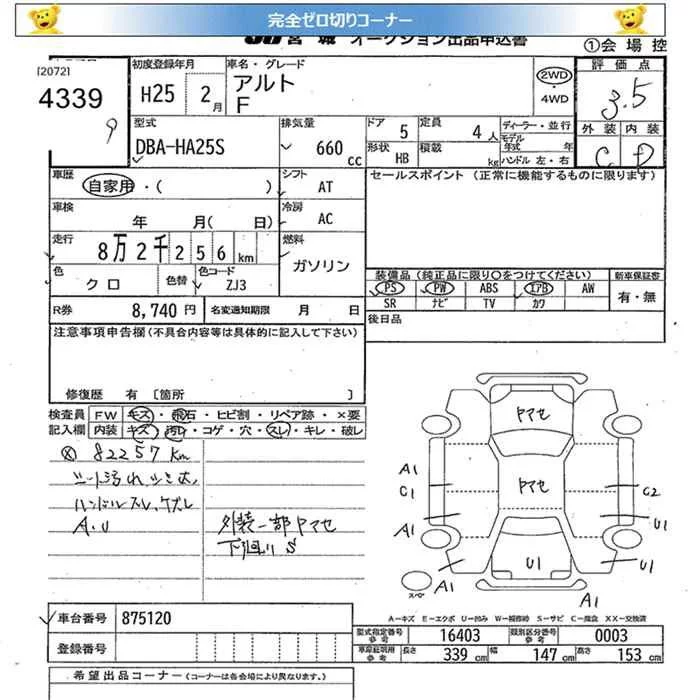 完全ゼロ切りコーナー
JU宮城 オークション出品申込書
①会場控
[2072]
4339
9
初度登録年月
H25 2月
車名・グレード
アルト
F
2WD
・
4WD
評価点
3.5
外装 内装
C D
型式
DBA-HA25S
排気量
660 cc
ドア 5
定員 4人
形状 HB
積載 kg
ディーラー・並行
モデル年式 年
ハンドル 左・右
車歴
自家用・( )
シフト
AT
セールスポイント (正常に機能するものに限ります)
車検
年 月( 日)
冷房
AC
走行
8万2千256km
燃料
ガソリン
色
クロ
色替
色コード
ZJ3
装備品(純正品に限り○をつけてください)
新車保証書
PS PW ABS エアB AW
SR ナビ TV カワ
有・無
R券 8,740円
名変通知期限 月 日
後日品
注意事項申告欄(不具合内容等は具体的に記入して下さい)
修復歴 有 [箇所 ]
検査員 FW キズ・飛石・ヒビ割・リペア跡・×要
記入欄 内装 キズ・汚れ・コゲ・穴・スレ・キレ・破レ
※ 82257km
シート汚れ、シミ大、
ハンドルスレ、ケズレ
A.U
外装一部ヤマセ
下廻りS
ヤマセ
ヤマセ
A1
C1
A1
A1
C2
U1
U1
U1
A1
スペア
A-キズ E-エクボ U-凹み W-補修跡 S-サビ C-腐食 XX-交換済
車台番号 875120
登録番号
型式指定番号 参考 16403
類別区分番号 参考 0003
車庫証明用 参考 長さ 339cm 幅 147cm 高さ 153cm
希望出品コーナー(コーナーは各会場により異なります。)